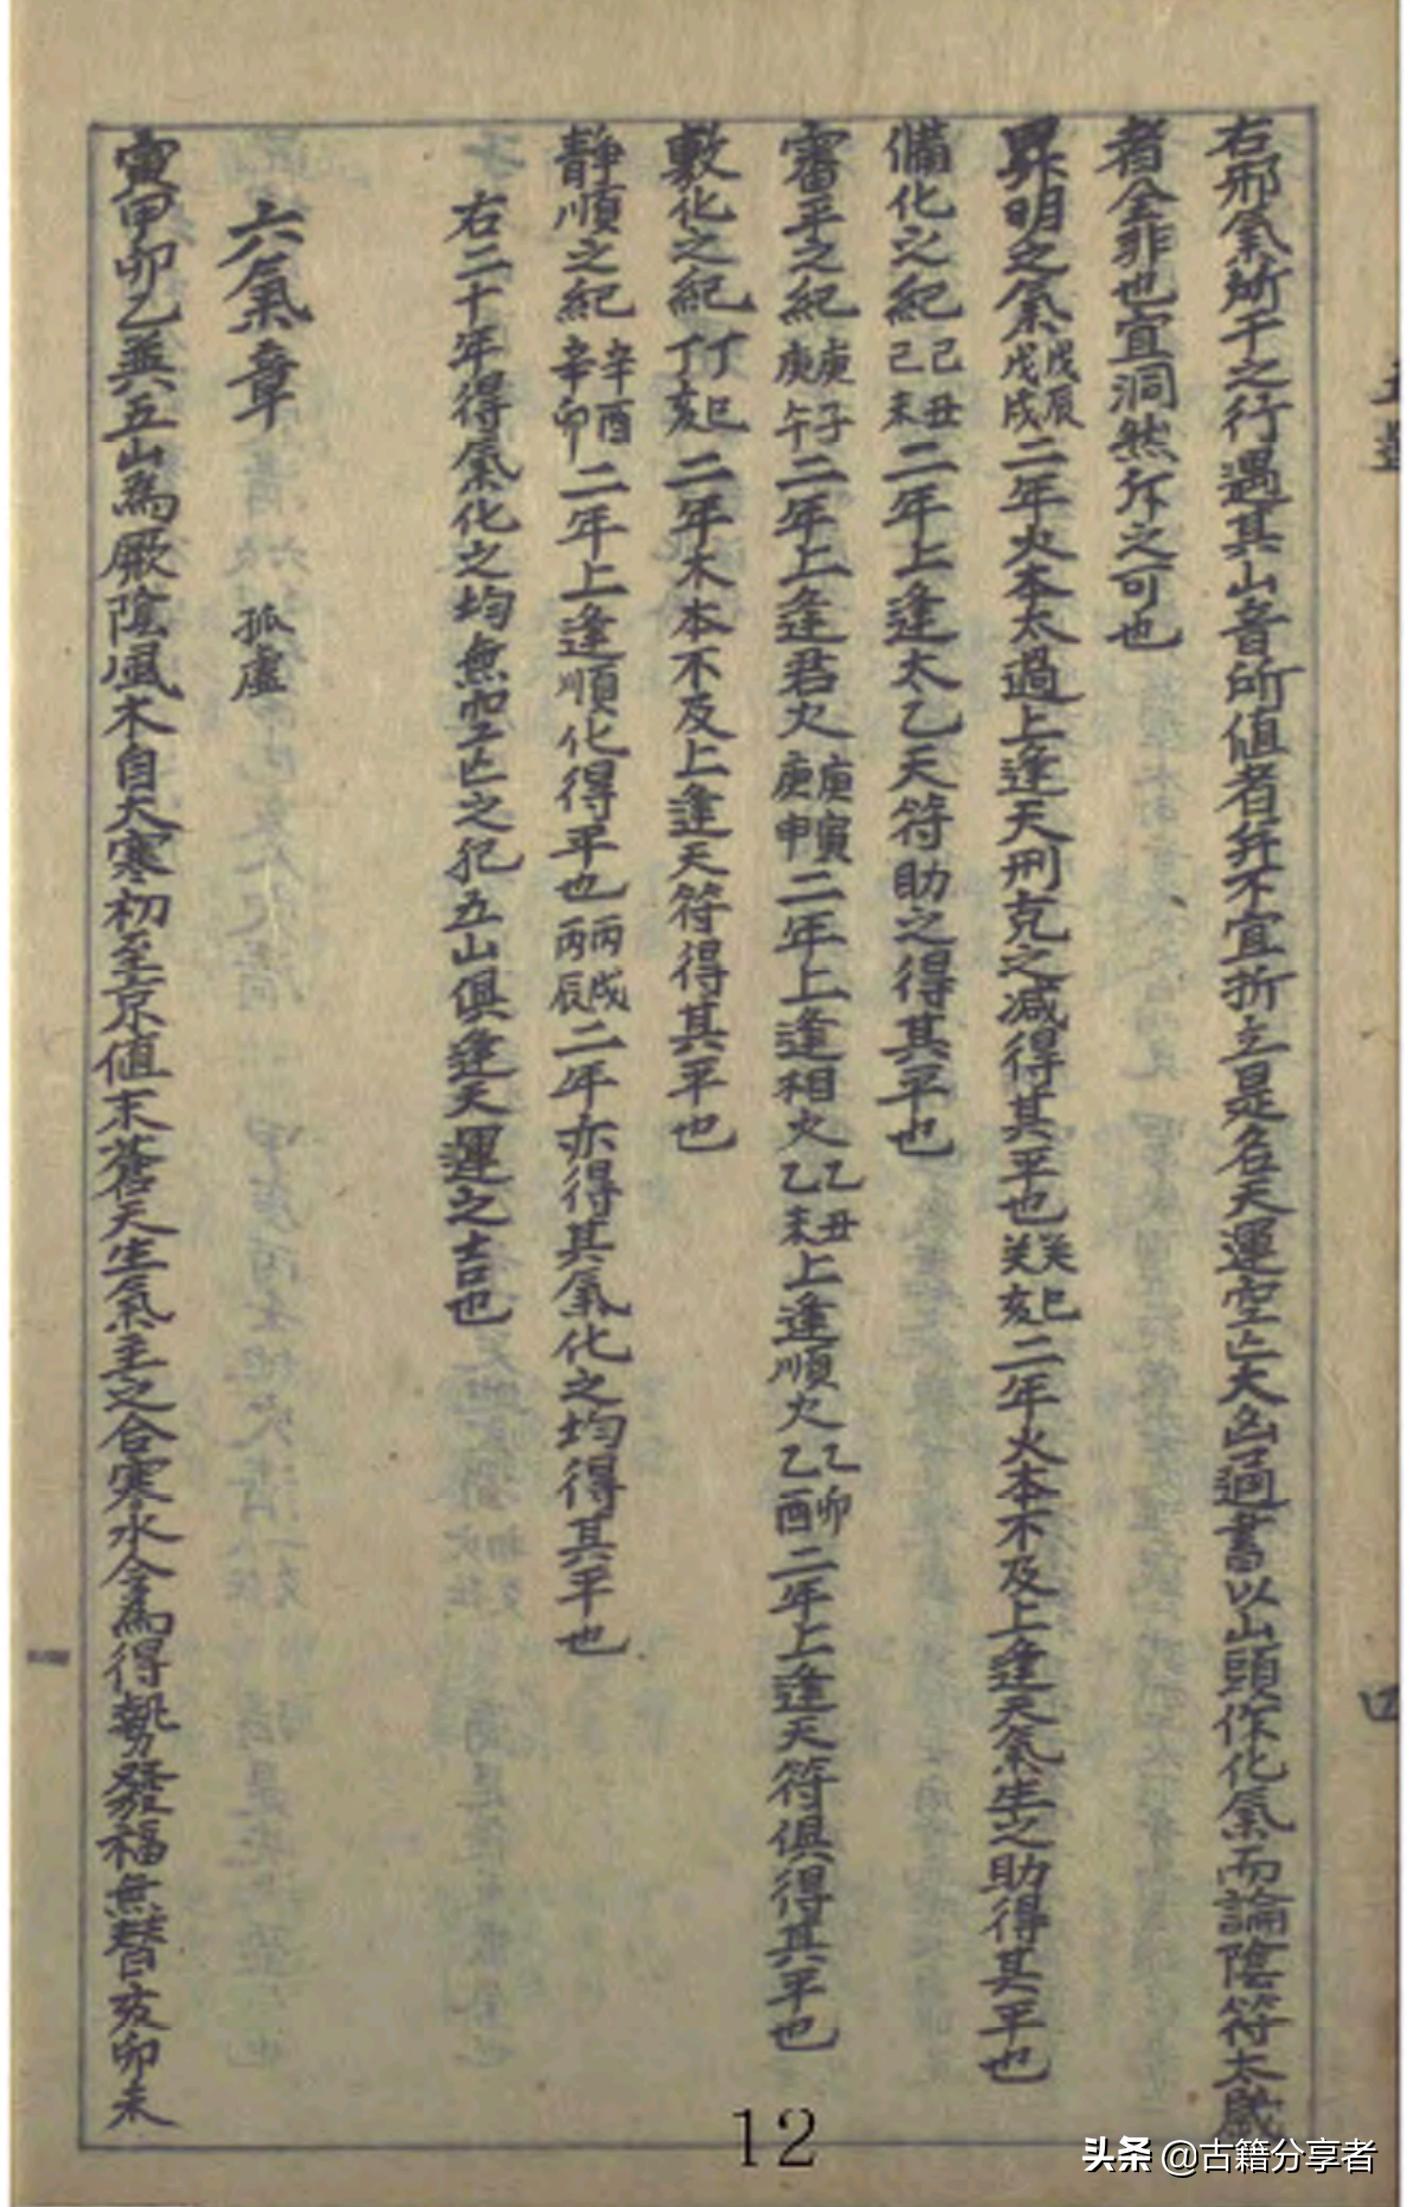 右邪氣所干之行遇其山音所值者并不宜折之是名天運空亡大凶了迴書以山頭作化氣而論陰符太歲
者全非也宜洞然斥之可也
昇明之氣戊辰戊戌二年火本太過上逢天刑克之減得其平也癸巳癸亥二年火本不及上逢天氣生之助得其平也
備化之紀己丑己未二年上逢太乙天符助之得其平也
審平之紀庚子庚午二年上逢君火庚寅庚申二年上逢相火乙丑乙未上逢順火乙卯乙酉二年上逢天符俱得其平也
敷化之紀丁巳丁亥二年木本不及上逢天符得其平也
靜順之紀辛酉辛卯二年上逢順化得平也丙戌丙辰二年亦得其氣化之均得其平也
右二十年得氣化之均無空亡之犯五山俱逢天運之吉也
六氣章 孤虛
寅甲卯乙巽五山為厥陰風木自大寒初至京值末蒼天生氣主之合寒水令為得勢發福無替亥卯未
五運
四
12
头条 @古籍分享者